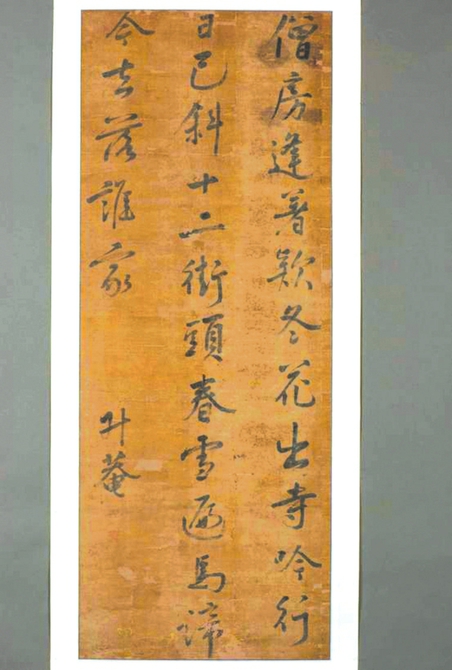 僧房逢著欵冬花出寺吟行
日已斜十二街頭春雪遍馬蹄
今去落誰家
升菴